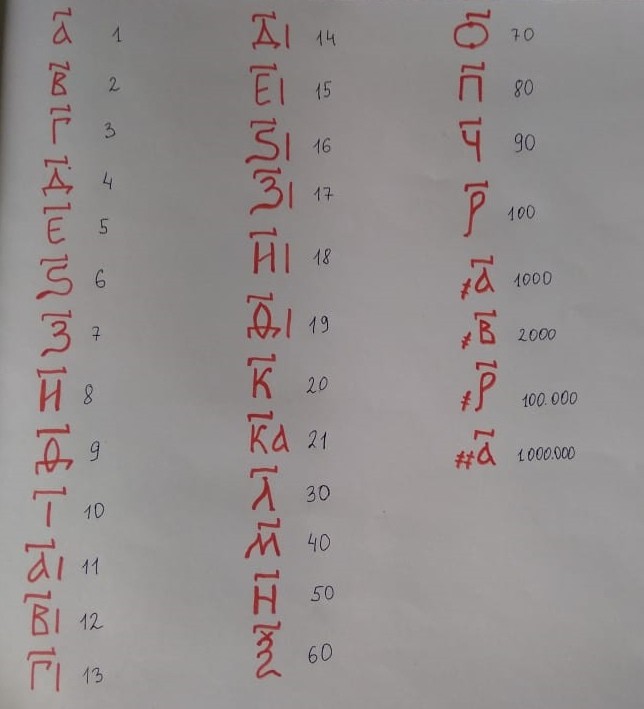 а҃ 1
В҃ 2
Г҃ 3
Д҃ 4
Е҃ 5
Ѕ҃ 6
З҃ 7
И҃ 8
Ѳ҃ 9
І҃ 10
а҃І 11
В҃І 12
Г҃І 13
Д҃І 14
Е҃І 15
Ѕ҃І 16
З҃І 17
И҃І 18
Ѳ҃І 19
К҃ 20
К҃а 21
Л҃ 30
М҃ 40
Н҃ 50
Ѯ҃ 60
О҃ 70
П҃ 80
Ч҃ 90
Р҃ 100
҂а҃ 1000
҂В҃ 2000
҂Р҃ 100.000
҂҂а҃ 1000.000